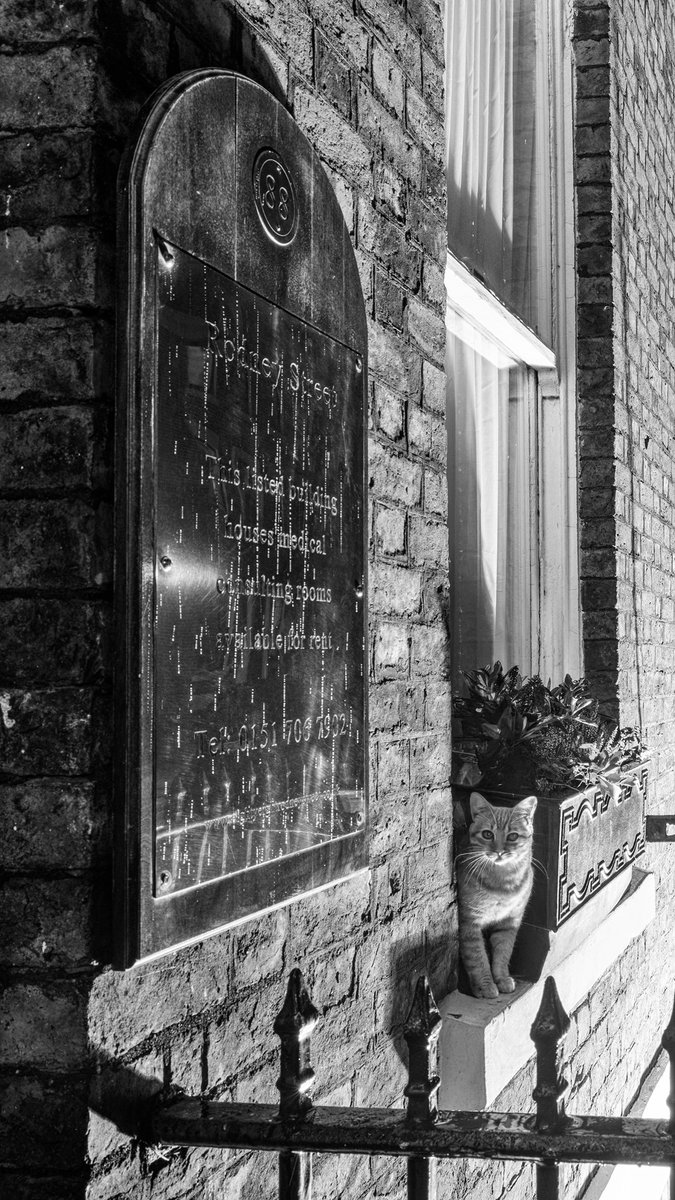 88
Rodney Street
This listed building
houses medical
consulting rooms
available for rent.
Tel: 0151 706 7932